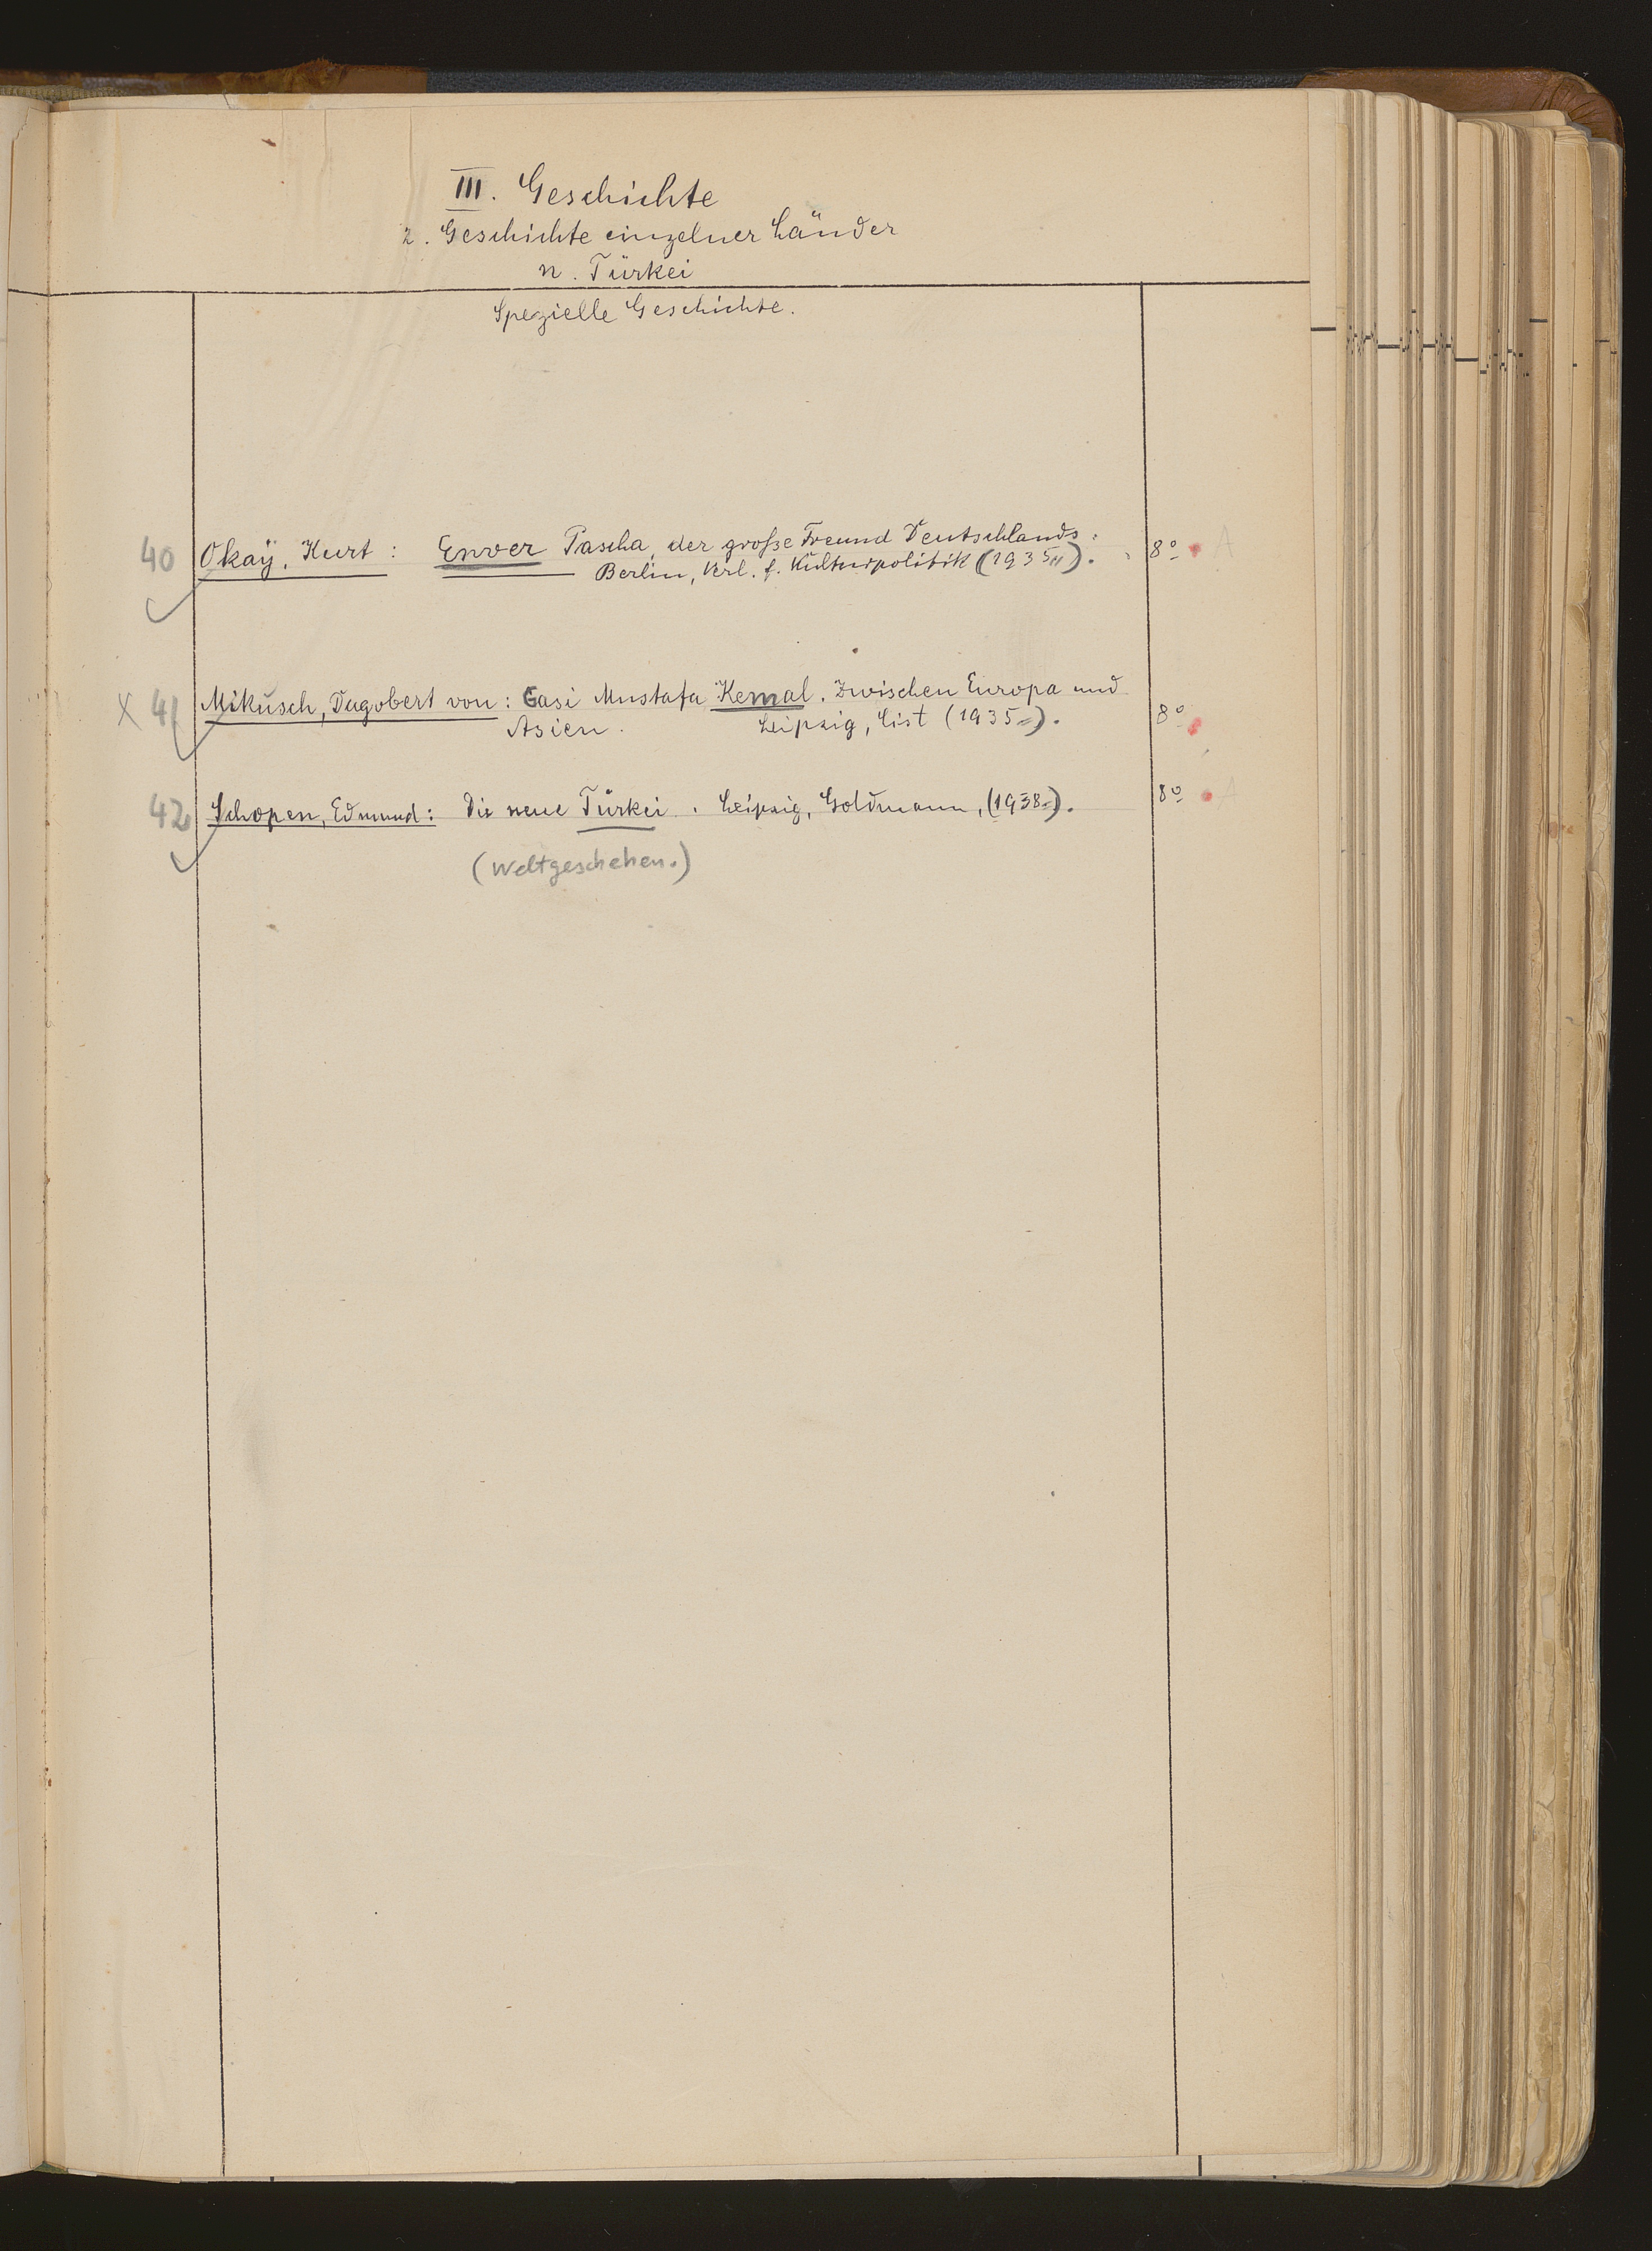 III. Geschichte
2. Geschichte einzelner Länder
n. Türkei
Spezielle Geschichte.
40 Okaÿ, Kurt: Enver Pascha, der große Freund Deutschlands. 8° A
Berlin, Verl. f. Kulturpolitik (1935).
X 41 Mikusch, Dagobert von: Gasi Mustafa Kemal. Zwischen Europa und
Asien. Leipzig, List (1935). 8°
42 Schopen, Edmund: Die neue Türkei. Leipzig, Goldmann, (1938). 8° A
(Weltgeschehen.)